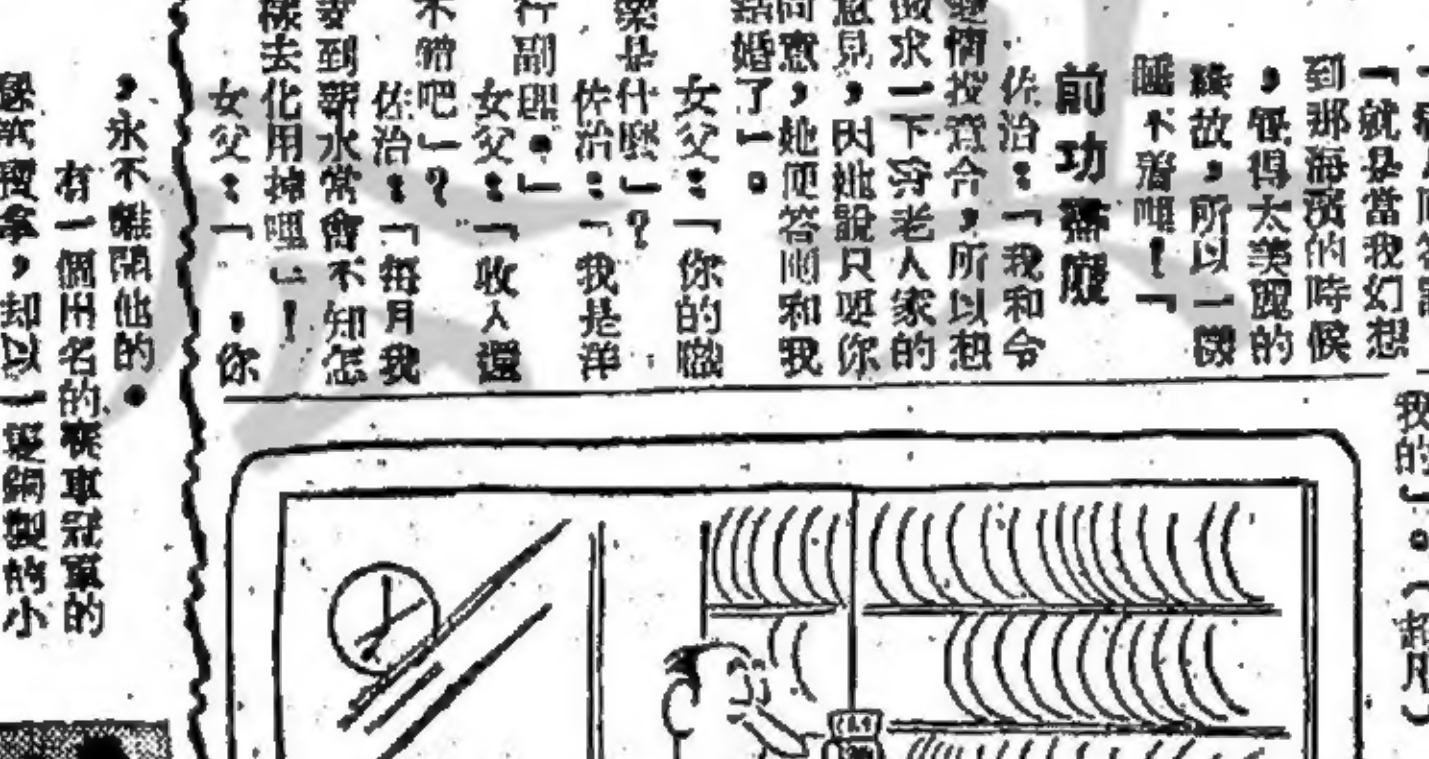 就是當我幻想
到那海濱的時候
，覺得太美麗的
緣故，所以一個
睡不着哩！」
前功盡廢
佐治：「我和令
情投意合，所以想
求一下穷老人家的
意見，因她說只要你
同意，她便答應和我
結婚了」。
女父：「你的職
業是什麼」？
佐治：「我是洋
行副理。」
女父：「收入還
不錯吧」？
佐治：「每月我
拿到薪水常會不知怎
樣去化用掉哩」！
女父：「，你
我的了」。（超凡）
，永不離開他的。
有一個出名的賽車冠軍的
却以一隻鋼製的小